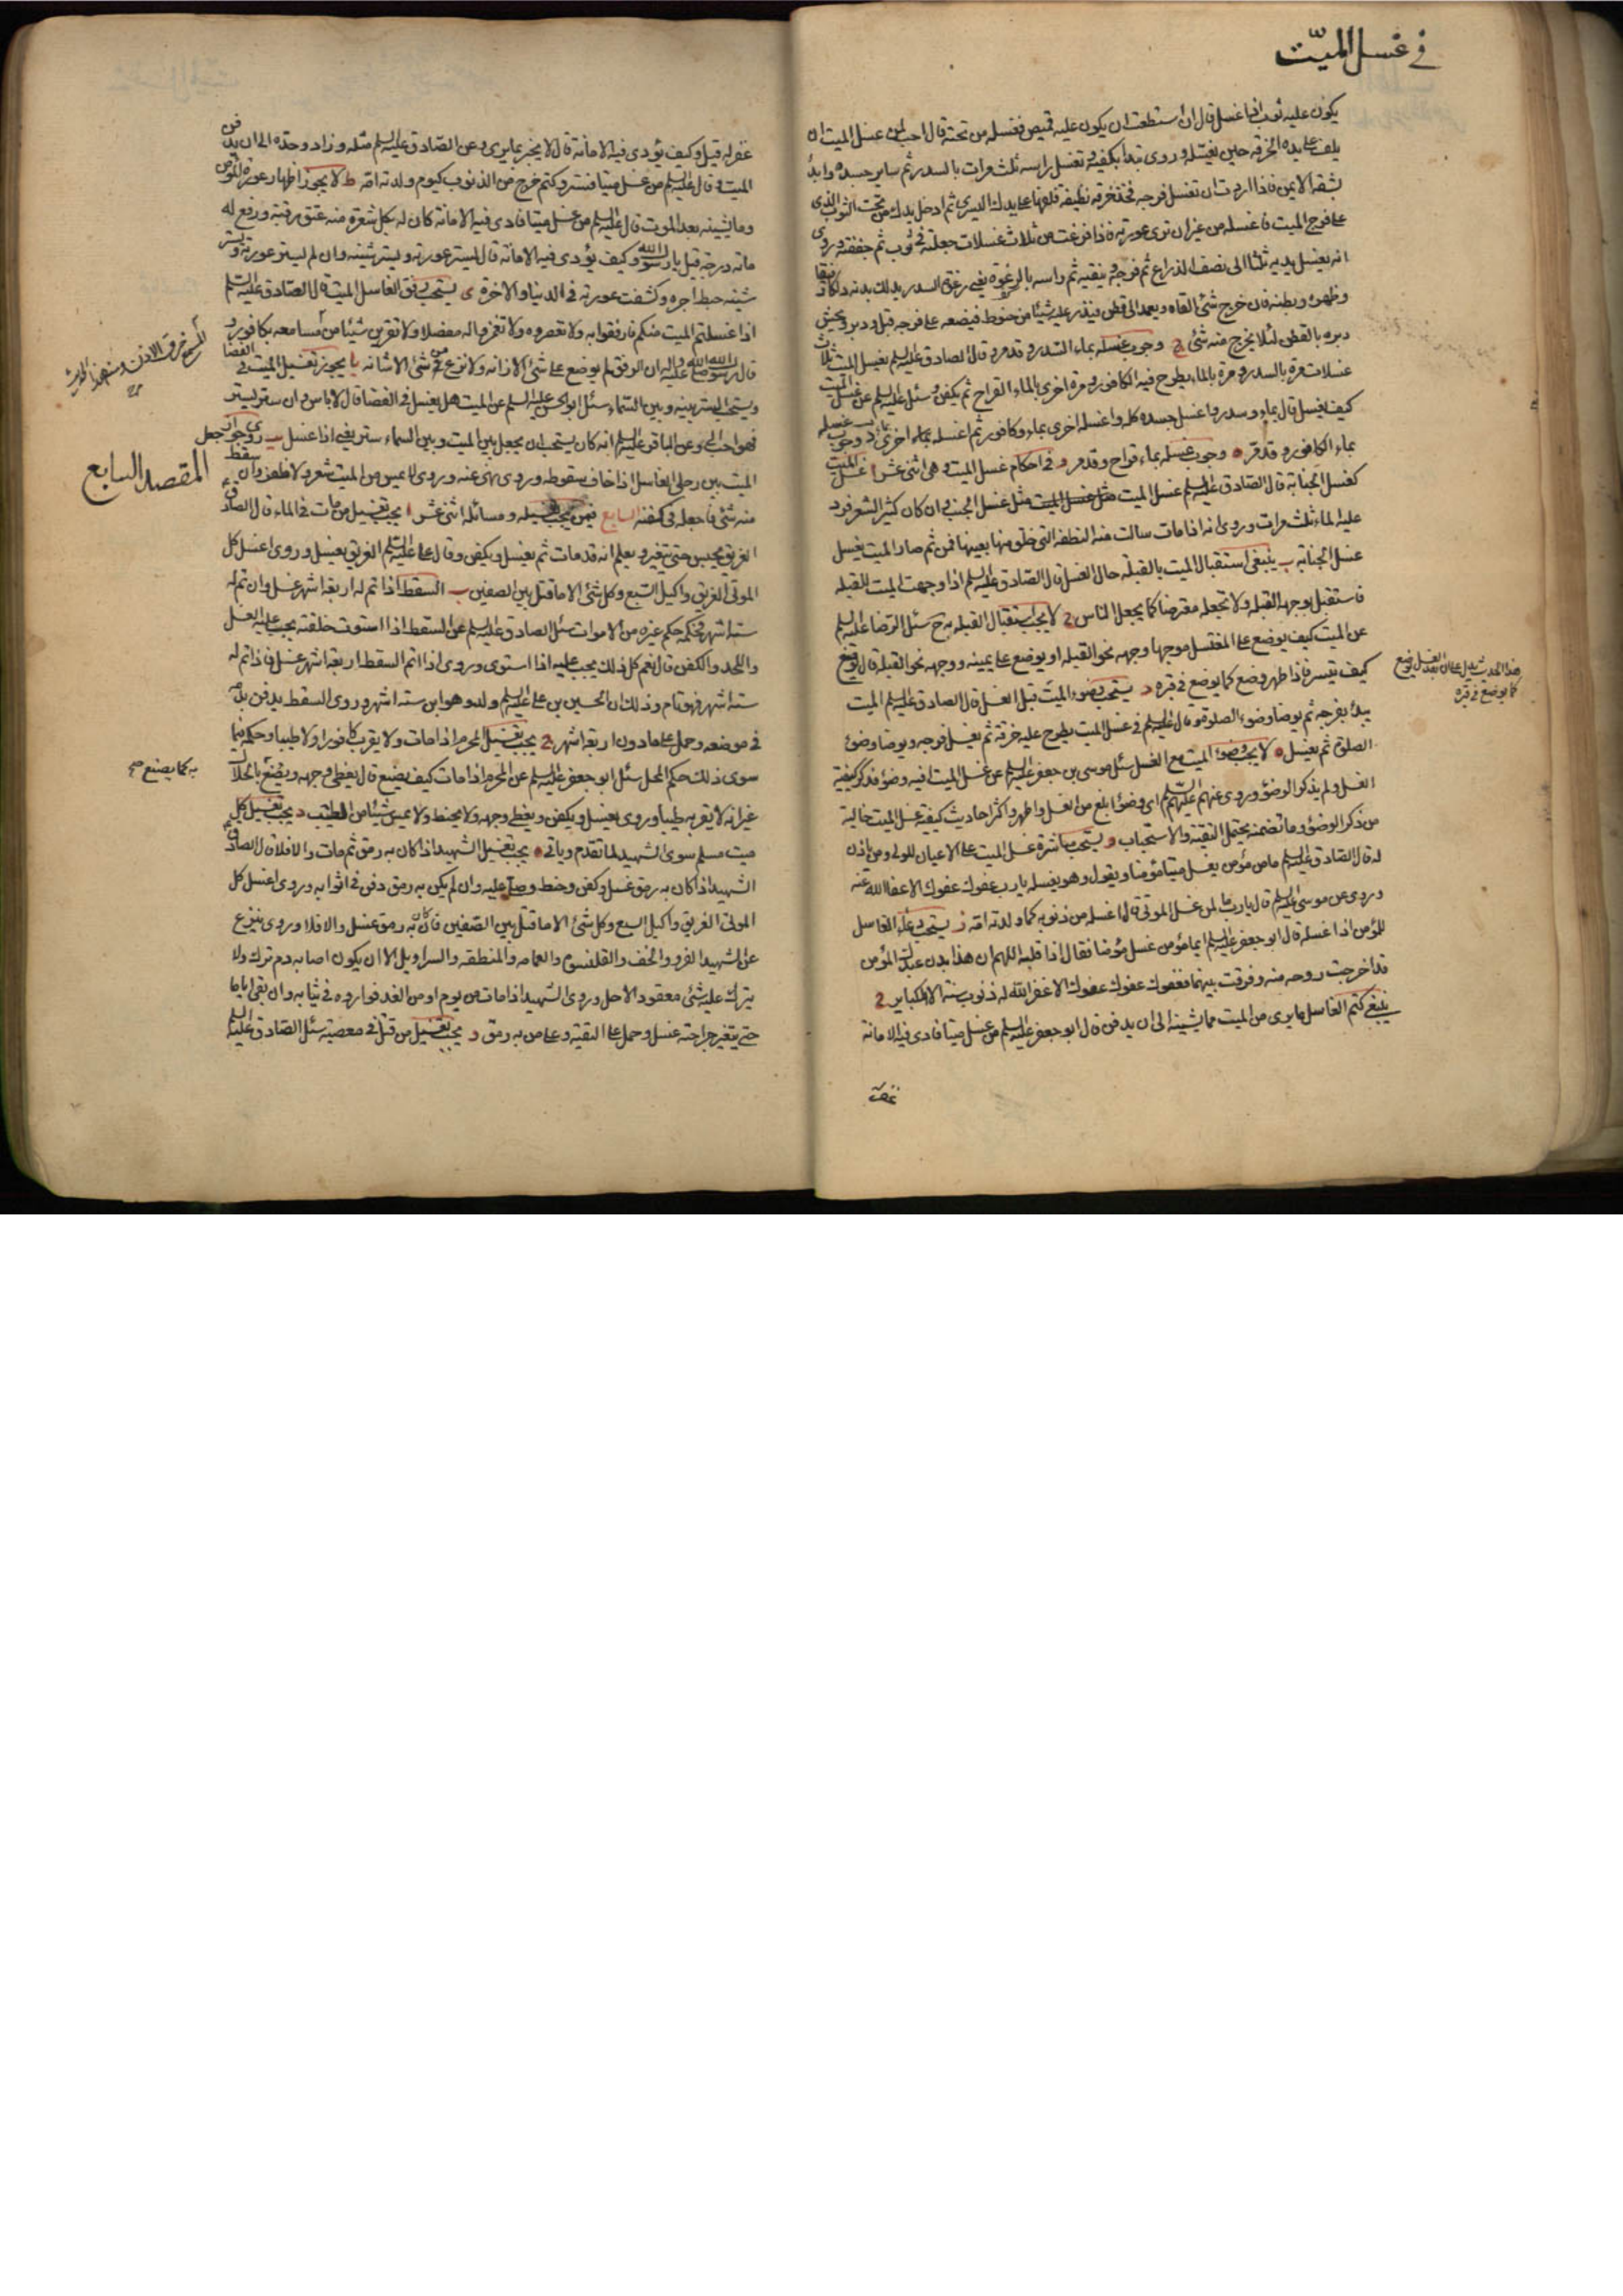 في غسل الميّت
يكون عليه ثوب اذا غسل قال ان استطعت ان يكون عليه قميص فغسله من تحته قال احب لمن غسل الميت ان
يلف على يده الخرقه حين يغسله وروى تبدا بكفيه ثم تغسل راسه ثلث مرات بالسدر ثم ساير جسده وابدأ
بشقه الايمن فاذا اردت ان تغسل فرجه فخذ خرقه نظيفة فلفها على يدك اليسرى ثم ادخل يدك من تحت الثوب الذى
على فرج الميت فاغسله من غير ان ترى عورته فاذا فرغت من ثلاث غسلات جعلته في ثوب ثم جففته وروى
انه يغسل يديه ثلثا الى نصف الذراع ثم فرجه وينقيه ثم راسه بالرغوة يعنى رغوة السدر يدلك بدنه دلكا رفيقا
وظهره وبطنه فان خرج شئ القاه ويعمد الى قطن فيذر عليه شيئا من حنوط فيضعه على فرجه قبل ودبر ويحش
دبره بالقطن لئلا يخرج منه شئ وجوب غسله بماء السدر وقد مر وقال الصادق عليه السلم يغسل الميت ثلاث
غسلات مرة بالسدر ومرة بالماء يطرح فيه الكافور ومرة اخرى بالماء القراح ثم يكفن وسئل عليه السلم عن غسل الميت
كيف يغسل قال بماء وسدر واغسل جسده كله واغسله اخرى بماء وكافور ثم اغسله بماء اخرى د وجوب غسله
بماء الكافور وقد مر ه وجوب غسله بماء قراح وقد مر و في احكام غسل الميت وهى اثنى عشر ا غسل الميت
كغسل الجنابة قال الصادق عليه السلم غسل الميت مثل غسل الجنب وان كان كثير الشعر فرد
عليه الماء ثلث مرات وروى انه اذا مات سالت منه النطفه التى خلق منها بعينها فمن ثم صار الميت يغسل
غسل الجنابة ب ينبغى استقبال الميت بالقبلة حال الغسل قال الصادق عليه السلم اذا وجهت الميت للقبله
فاستقبل بوجهه القبله ولا تجعله معترضا كما يجعل الناس لا يجب استقبال القبله به ح سئل الرضا عليه السلم
عن الميت كيف يوضع على المغتسل موجها وجهه نحو القبله او يوضع على يمينه ووجهه نحو القبلة قال يوضع
كيف تيسر فاذا طهر وضع كما يوضع في قبره د يستحب وضوء الميت قبل الغسل قال الصادق عليه السلم الميت
يبدأ بفرجه ثم يوضا وضوء الصلوة وقال عليه السلم في غسل الميت يطرح عليه خرقة ثم يغسل فرجه ويوضا وضوء
الصلوة ثم يغسل ه لا يجب وضوء الميت مع الغسل سئل موسى بن جعفر عليه السلم عن غسل الميت افيه وضوء فذكر كيفية
الغسل ولم يذكر الوضوء وروى عنهم عليهم السلم اى وضوء ابلغ من الغسل واطهر واكثر احاديث كيفية غسل الميت خالية
من ذكر الوضوء وما تضمنه يحتمل التقية والاستحباب و يستحب مباشرة غسل الميت على الاعيان للولى ومن ياذن
له قال الصادق عليه السلم ما من مؤمن يغسل ميتا مؤمنا ويقول وهو يغسله يارب عفوك عفوك الا عفا الله عنه
وروى عن موسى عليه السلم قال يارب ما لمن غسل الموتى قال اغسله من ذنوبه كما ولدته امه ز يستحب دعاء الغاسل
للمؤمن اذا غسله قال ابو جعفر عليه السلم ايما مؤمن غسل مؤمنا فقال اذا قلبه اللهم ان هذا بدن عبدك المؤمن
قد اخرجت روحه منه وفرقت بينهما فعفوك عفوك عفوك الا غفر الله له ذنوب سنة الا الكباير
ينبغى كتم الغاسل ما يرى من الميت مما يشينه الى ان يدفن قال ابو جعفر عليه السلم من غسل ميتا فادى فيه الامانة
هذا الحديث يدل على ان بعد الغسل يوضع
كما يوضع في قبره
غفر له
غفر له قيل وكيف يؤدى فيه الامانة قال لا يخبر بما يرى وعن الصادق عليه السلم مثله وزاد وحده الى ان يدفن
الميت وقال عليه السلم من غسل ميتا فستر وكتم خرج من الذنوب كيوم ولدته امه ط لا يجوز اظهار عورة المؤمن
وما يشينه بعد الموت قال عليه السلم من غسل ميتا فادى فيه الامانة كان له بكل شعرة منه عتق رقبة ورفع له
مائة درجة قيل يا رسول الله وكيف يؤدى فيه الامانة قال يستر عورته ويستر شينه وان لم يستر عورته ويستر
شينه حبط اجره وكشفت عورته في الدنيا والاخرة ى يستحب رفق الغاسل الميت قال الصادق عليه السلم
اذا غسلتم الميت منكم فارفقوا به ولا تعصروه ولا تغمزوا له مفصلا ولا تقربن شيئا من مسامعه بكافور و
قال رسول الله صلى الله عليه واله ان الرفق لم يوضع على شئ الا زانه ولا نزع من شئ الا شانه يا يجوز تغسيل الميت في الفضا
ويستحب الستر بينه وبين السماء سئل ابو الحسن عليه السلم عن الميت هل يغسل في الفضا قال لا باس وان ستر بستر
فهو احب الى وعن الباقر عليه السلم انه كان يستحب ان يجعل بين الميت وبين السماء ستر يعنى اذا غسل يب روى جواز جعل
الميت بين رجلى الغاسل اذا خاف سقوطه وروى نهى عنه وروى لا يمس من الميت شعر ولا ظفر وان سقط
منه شئ فاجعله في كفنه السابع فيمن يجب غسيله ومسائله اثنى عشر ا يجب تغسيل من مات في الماء قال الصادق
الغريق يحبس حتى يتغير ويعلم انه قد مات ثم يغسل ويكفن وقال على عليه السلم الغريق يغسل وروى اغسل كل
الموتى الغريق واكيل السبع وكل شئ الا ما قتل بين الصفين ب السقط اذا تم له اربعة اشهر غسل وان تم له
ستة اشهر فحكمه حكم غيره من الاموات سئل الصادق عليه السلم عن السقط اذا استوت خلقته يجب عليه الغسل
واللحد والكفن قال نعم كل ذلك يجب عليه اذا استوى وروى اذا اتم السقط اربعة اشهر غسل فاذا تم له
ستة اشهر فهو تام وذلك ان الحسين بن على عليه السلم ولد وهو ابن ستة اشهر وروى السقط يدفن بدمه
في موضعه وحمل على ما دون اربعة اشهر يجب تغسيل المحرم اذا مات ولا يقرب كافورا ولا طيبا وحكمه فيما
سوى ذلك حكم المحل سئل ابو جعفر عليه السلم عن المحرم اذا مات كيف يصنع قال يغطى وجهه ويصنع بالحلال
غير انه لا يقربه طيبا وروى يغسل ويكفن ويغطى وجهه ولا يحنط ولا يمس شيئا من الطيب د يجب تغسيل كل
ميت مسلم سوى الشهيد لما تقدم وياتى ه يجب تغسيل الشهيد اذا كان به رمق ثم مات والا فلا قال الصادق
الشهيد اذا كان به رمق غسل وكفن وحنط وصلى عليه وان لم يكن به رمق دفن في اثوابه وروى اغسل كل
الموتى الغريق واكيل السبع وكل شئ الا ما قتل بين الصفين فان كان به رمق غسل والا فلا وروى ينزع
عن الشهيد الفرو والخف والقلنسوه والعمامه والمنطقه والسراويل الا ان يكون اصابه دم ترك ولا
يترك عليه شئ معقود الا حل وروى الشهيد اذا مات من يومه او من الغد فواروه في ثيابه وان بقى اياما
حتى يتغير جراحته غسل وحمل على التقية وعلى من به رمق و يجب تغسيل من قتل في معصية سئل الصادق عليه السلم
المقصد السابع
به كما يصنع صح